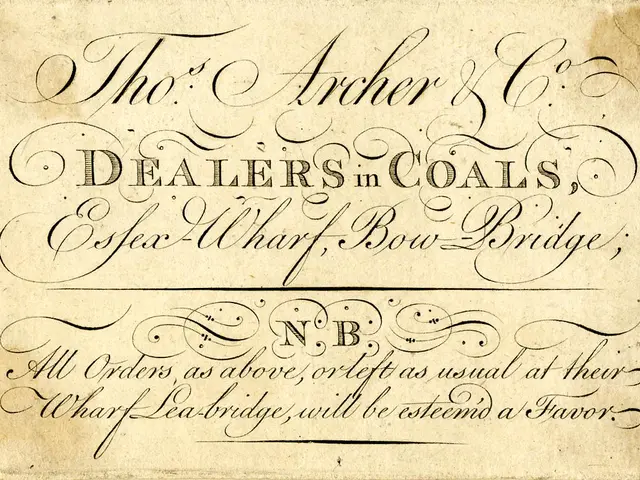 Tho.s Archer & Co.
DEALERS in COALS,
Eſsex-Wharf, Bow-Bridge;
N.B.
All Orders, as above, or left as usual at their
Wharf Lea-bridge, will be esteem'd a Favor.